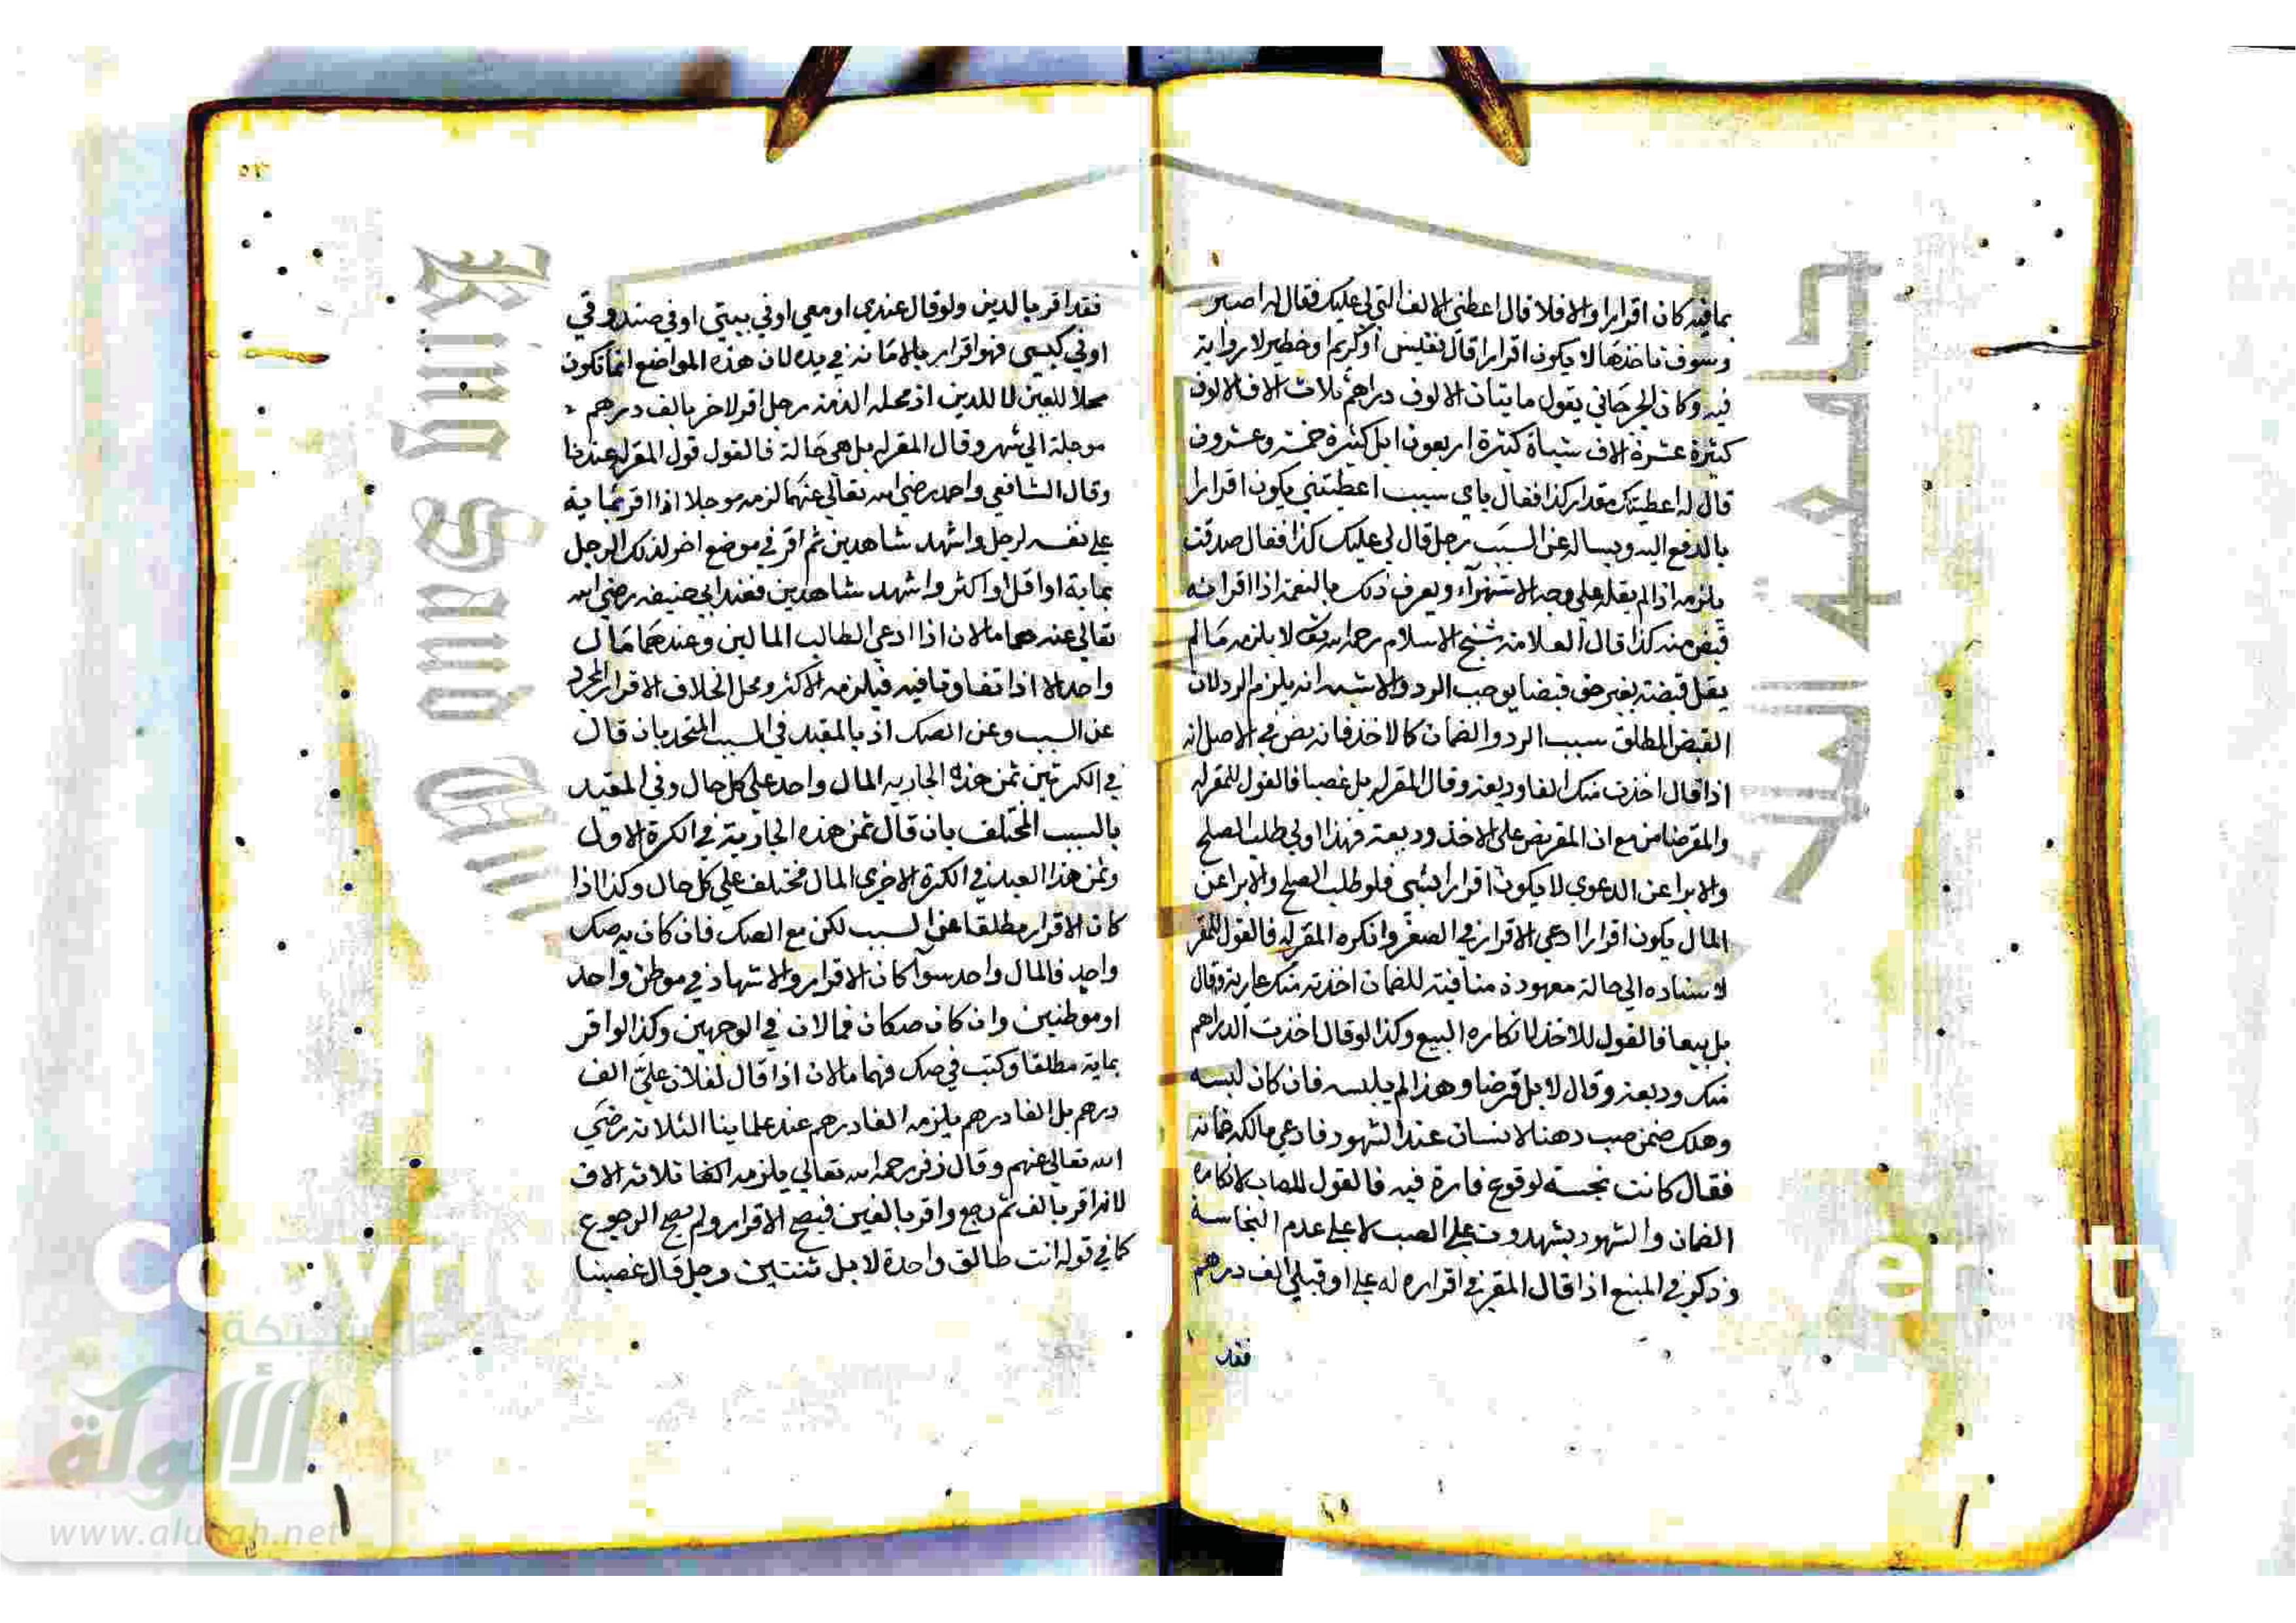 بما فيه كان اقرارا والا فلا قال اعطني الالف التي لي عليك فقال له اصبر
وسوف تاخذها لا يكون اقرارا قال نفيس او كريم او خطير لا رواية
فيه وكان الجرجاني يقول مايتان الالوف دراهم ثلاث الاف الالوف
كثيرة عشرة الاف شياة كثيرة اربعون ابل كثيرة خمسة وعشرون
قال له اعطيتك مقدار كذا فقال باي سبب اعطيتني يكون اقرارا
بالدفع اليه ويساله عن السبب رجل قال لي عليك كذا فقال صدقت
يلزمه اذا لم يقله علي وجه الاستهزآء ويعرف ذلك بالنغمة اذا اقر انه
قبض منه كذا قال العلامة شيخ الاسلام رحمه الله تعالى لا يلزمه مالم
يقل قبضته بغير حق قبضا يوجب الرد والاشبه انه يلزم الرد لان
القبض المطلق سبب الرد والضمان كالاخذ فانه نص في الاصل انه
اذا قال اخذت منك الفا وديعة وقال المقر له بل غصبا فالقول للمقر له
والمقر ضامن مع ان المقر نص علي الاخذ وديعة فهذا اولي طلب الصلح
والابرا عن الدعوي لا يكون اقرارا بشي فلو طلب الصلح والابرا عن
المال يكون اقرارا ادعي الاقرار في الصغر وانكره المقر له فالقول للمقر
لاسناده الي حالة معهودة منافية للضمان اخذته منك عارية وقال
بل بيعا فالقول للاخذ لانكاره البيع وكذا لو قال اخذت الدراهم
منك وديعة وقال لا بل قرضا وهذا لم يلبسه فان كان لبسه
وهلك ضمن صب دهنا لانسان عند الشهود فادعي مالكه ضمانه
فقال كانت نجسة لوقوع فارة فيه فالقول للصاب لانكاره
الضمان والشهود يشهدون علي الصب لا علي عدم النجاسة
وذكر في المنبع اذا قال المقر في اقراره له علي او قبلي الف درهم
فقد
فقد اقر بالدين ولو قال عندي او معي او في بيتي او في صندوقي
او في كيسي فهو اقرار بالامانة في يده لان هذه المواضع انما تكون
محلا للعين لا للدين اذ محله الذمة رجل اقر لاخر بالف درهم
موجلة الي شهر وقال المقر له بل هي حالة فالقول قول المقر له عندنا
وقال الشافعي واحمد رضي الله تعالي عنهما لزمه موجلا اذا اقر بماية
علي نفسه لرجل واشهد شاهدين ثم اقر في موضع اخر لذلك الرجل
بماية او اقل او اكثر واشهد شاهدين فعند ابي حنيفة رضي الله
تعالي عنه هما مالان اذا ادعي الطالب المالين وعندهما مال
واحد الا اذا تفاوتا فيه فيلزمه الاكثر ومحل الخلاف الاقرار المجرد
عن السبب وعن الصك اذ بالمقيد في السبب المتحد بان قال
في الكرتين ثمن هذه الجاريه المال واحد علي كل حال وفي المقيد
بالسبب المختلف بان قال ثمن هذه الجارية في الكرة الاولي
وثمن هذا العبد في الكرة الاخري المال مختلف علي كل حال وكذا اذا
كان الاقرار مطلقا عن السبب لكن مع الصك فان كان به صك
واحد فالمال واحد سوآ كان الاقرار والاشهاد في موطن واحد
او موطنين وان كان صكان فمالان في الوجهين وكذا لو اقر
بماية مطلقا وكتب في صك فهما مالان اذا قال لفلان علي الف
درهم بل الفا درهم يلزمه الفا درهم عند علماينا الثلاثة رضي
الله تعالي عنهم وقال زفر رحمه الله تعالي يلزمه ثلاثة الاف
لانه اقر بالف ثم رجع واقر بالفين فيصح الاقرار ولم يصح الرجوع
كما في قوله انت طالق واحدة لا بل ثنتين رجل قال غصبنا
شبكة
الألوكة
www.alukah.net